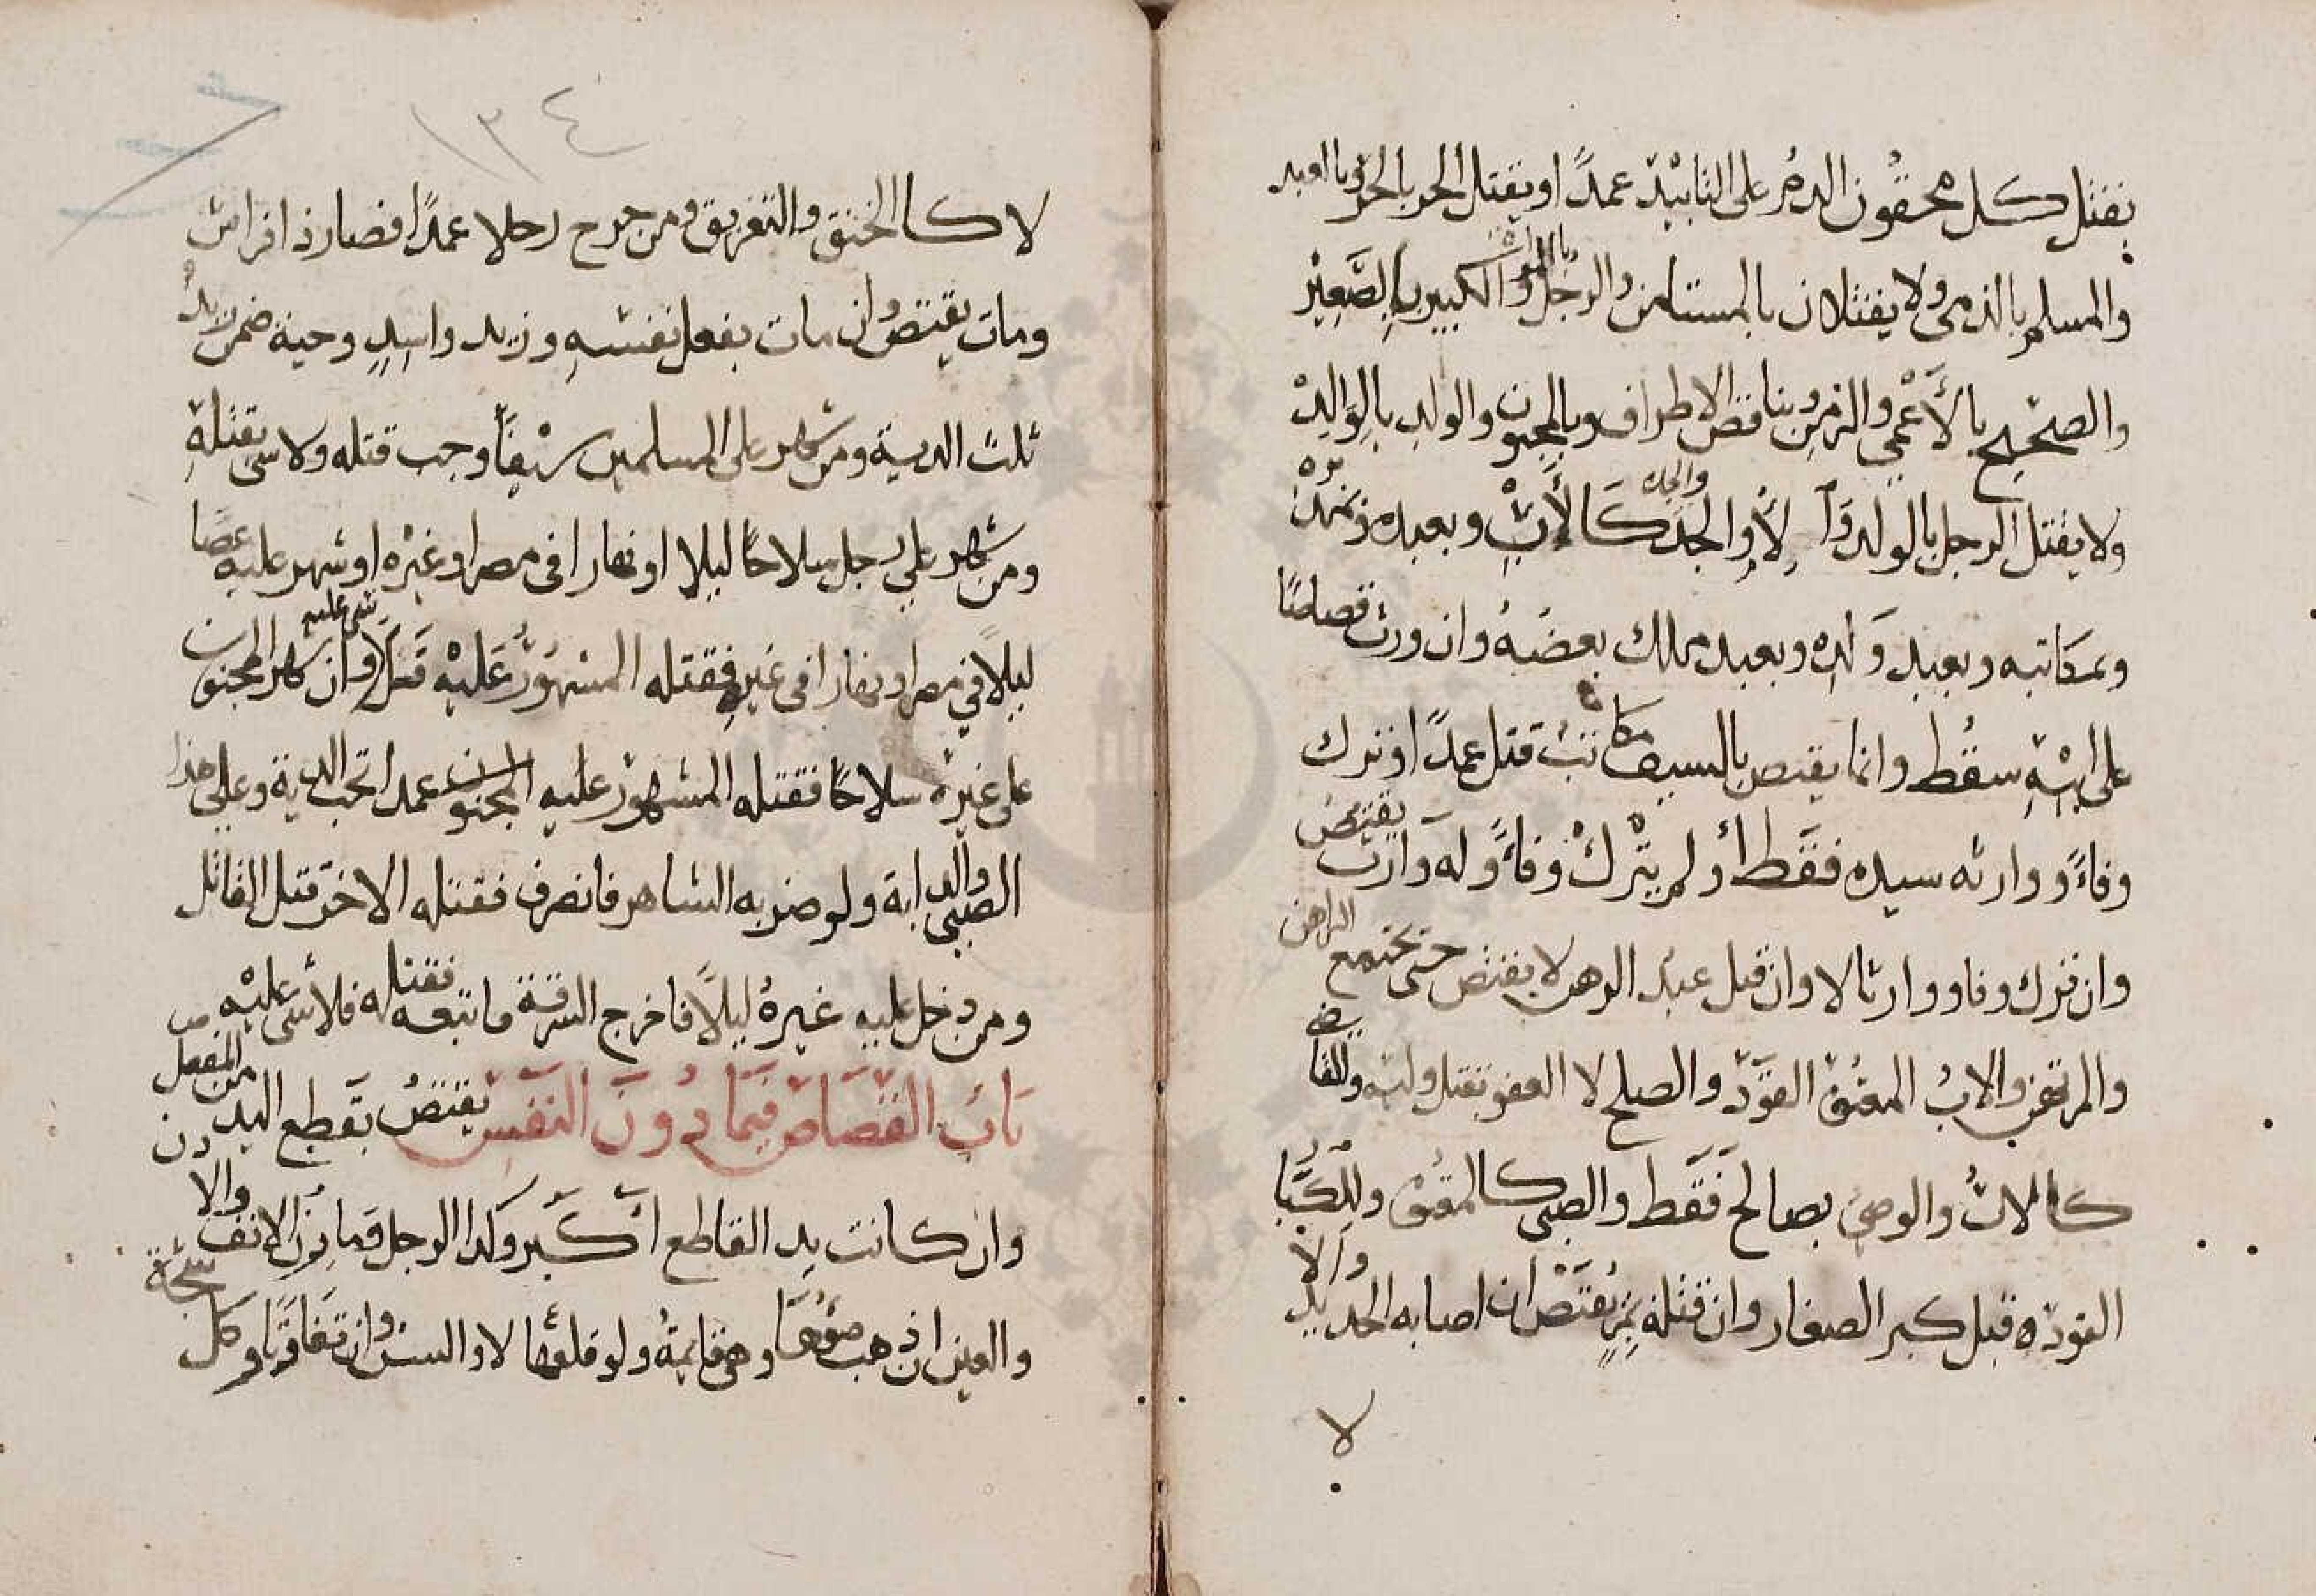 يقتل كل محقون الدم على التابيد عمدًا ويقتل الحر بالحر وبالعبد
والمسلم بالذمى ولا يقتلان بالمستامن والرجل بالمراة والكبير بالصَّغِيْر
والصحيح بالأعْمي والزمن وبناقص الاطراف وبالمجنون والولد بالوالد
ولا يقتل الرجل بالولد وَالأم والجد والجدة كَالأب وبعبده ومدبره
وبمكاتبه وبعبد وَلده وبعبد ملك بعضهُ وان ورث قصاصًا
على ابيْهِ سقُط وانما يقتص بالسيف مكاتب قتل عمدًا وترك
وفاءً ووارثه سيده فقَط أو لم يتْركْ وفاءً وله وَارث يقتص
وان ترك وفا ووارثا لا وان قتل عبد الرهن لا يقتص حتى يجتمع الراهن
والمرتهن والاب المعتوْهْ القوَد والصلح لا العفو بقتل وليه والقاضي
كالاب والوصي يصالح فقَط والصبى كالمعتوْه وللكبَّار
القود قبل كبر الصغار وان قتله بمرٍّ يُقتَصّ ان اصابه الحديد والا
لا
١٣٤
لا كالخنق والتغريق ومن جرح رجلا عمدًا فصار ذا فراش
ومات يقتص وان مات بفعل نفسهِ وزيد واسدٍ وحية ضمن زيدُ
ثلث الدية ومن شهر على المسلمين سيْفًا وجب قتله ولا شى بقتله
ومن شهر علي رجل سلاحًا ليلا او نهارا فى مصر او غيْره او شهر عليه عصًا
ليلًا في مصر او نهارا فى غيره فقتله المشهوْر عَليْه فَلا شي عليه وان شهر المجنون
على غيره سلاحًا فقتله المشهوْر عليه المجنون عمدا تجب الدية وعلي هذا
الصبي والدابة ولو ضربه الشاهر فانصرف فقتله الاخر قتل القاتل
ومن دخل عليه غيرهُ ليلًا فاخرج السرقة فاتبعه فقتله فلا شى عليْه
بَابُ القصَاص فيمَا دُونَ النفْسِ يقتصُ بقَطع اليد من المفصل
وان كانت يد القاطع أكبَر وكذا الرجل ومارن الانف والاذن
والعين ان ذهب ضوْؤهَا وهى قايمة ولو قلعها لا والسن وان تفاوتَا وكل شجة